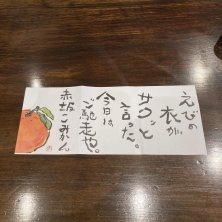 えびの
衣が
サクッと
言った。
今日は
ご馳走や。
赤坂こみかん。